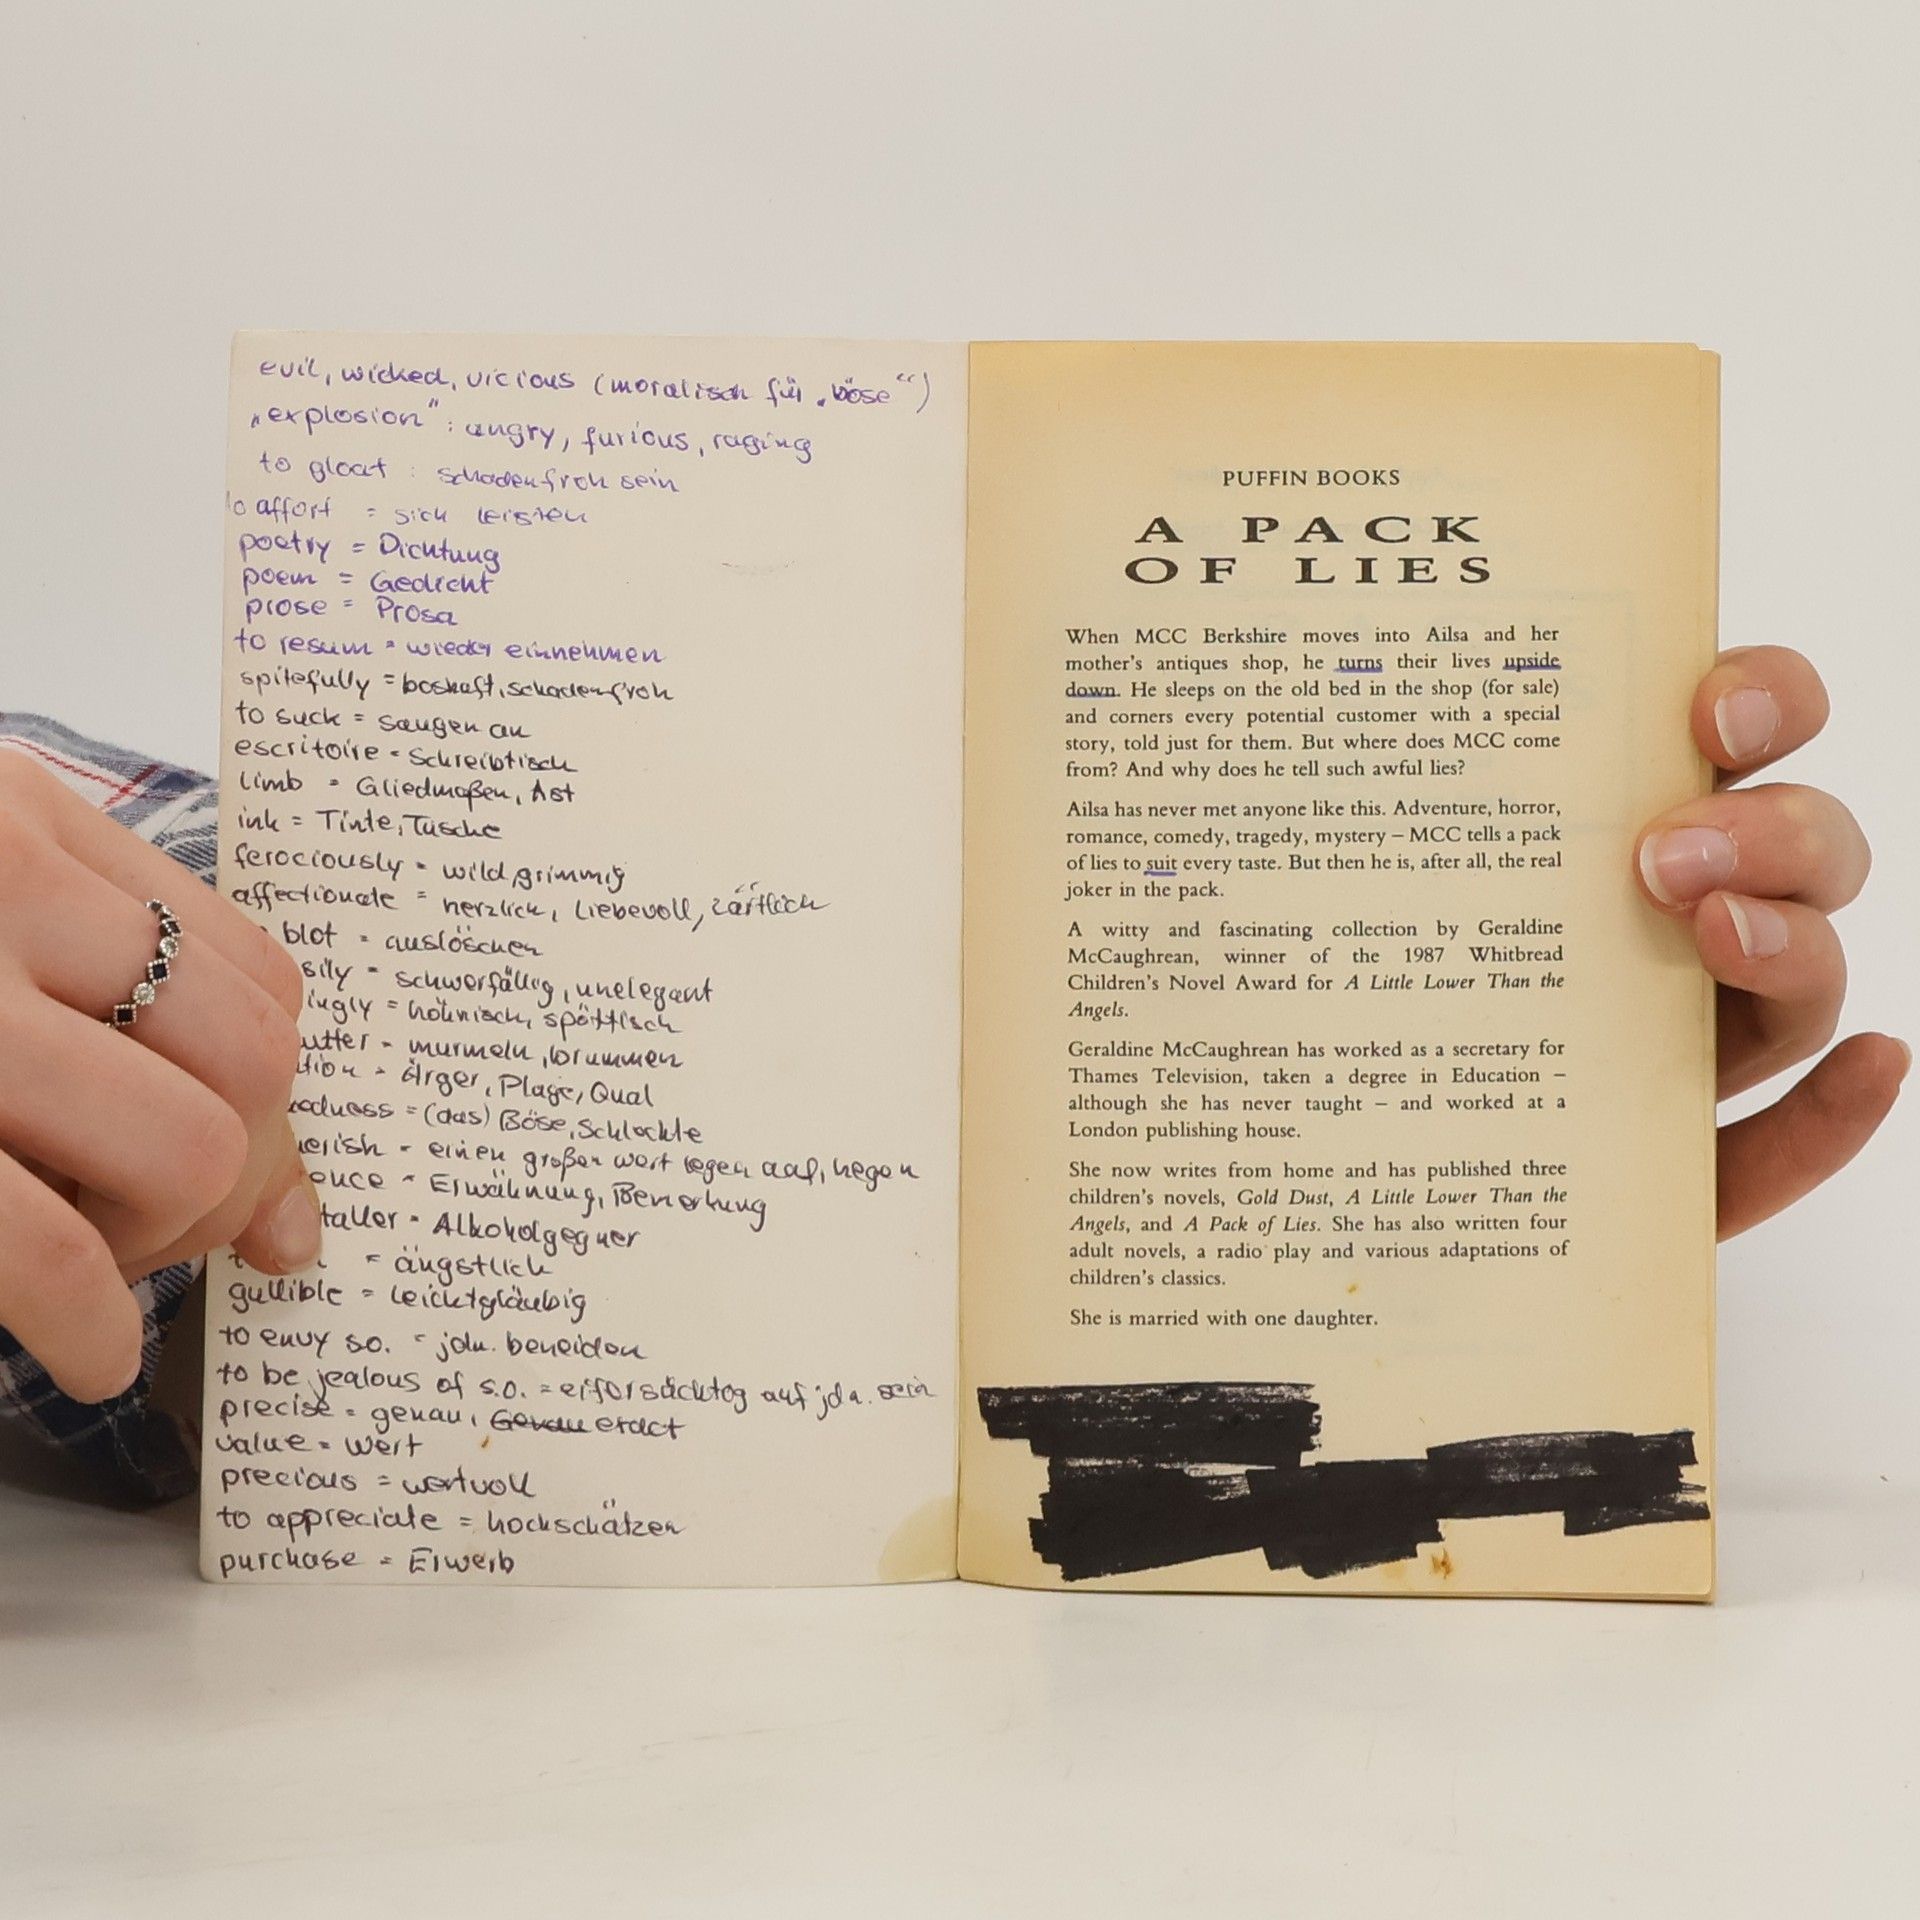 evil, wicked, vicious (moralisch für „böse“)
„explosion“: angry, furious, raging
to gloat : schadenfroh sein
to affort = sich leisten
poetry = Dichtung
poem = Gedicht
prose = Prosa
to resum = wieder einnehmen
spitefully = boshaft, schadenfroh
to suck = saugen an
escritoire = Schreibtisch
limb = Gliedmaßen, Ast
ink = Tinte, Tusche
ferociously = wild, grimmig
affectionate = herzlich, liebevoll, zärtlich
blot = auslöschen
= schwerfällig, unelegant
= höhnisch, spöttisch
= murmeln, brummen
= Ärger, Plage, Qual
= (das) Böse, Schlechte
= einen großen wert legen auf, hegen
= Erwähnung, Bemerkung
= Alkoholgegner
= ängstlich
gullible = leichtgläubig
to envy so. = jdn. beneiden
to be jealous of s.o. = eifersüchtog auf jdn. sein
precise = genau, Genau exact
value = wert
precious = wertvoll
to appreciate = hochschätzen
purchase = Erwerb
PUFFIN BOOKS
A PACK
OF LIES
When MCC Berkshire moves into Ailsa and her
mother's antiques shop, he turns their lives upside
down. He sleeps on the old bed in the shop (for sale)
and corners every potential customer with a special
story, told just for them. But where does MCC come
from? And why does he tell such awful lies?
Ailsa has never met anyone like this. Adventure, horror,
romance, comedy, tragedy, mystery – MCC tells a pack
of lies to suit every taste. But then he is, after all, the real
joker in the pack.
A witty and fascinating collection by Geraldine
McCaughrean, winner of the 1987 Whitbread
Children's Novel Award for A Little Lower Than the
Angels.
Geraldine McCaughrean has worked as a secretary for
Thames Television, taken a degree in Education –
although she has never taught – and worked at a
London publishing house.
She now writes from home and has published three
children's novels, Gold Dust, A Little Lower Than the
Angels, and A Pack of Lies. She has also written four
adult novels, a radio play and various adaptations of
children's classics.
She is married with one daughter.